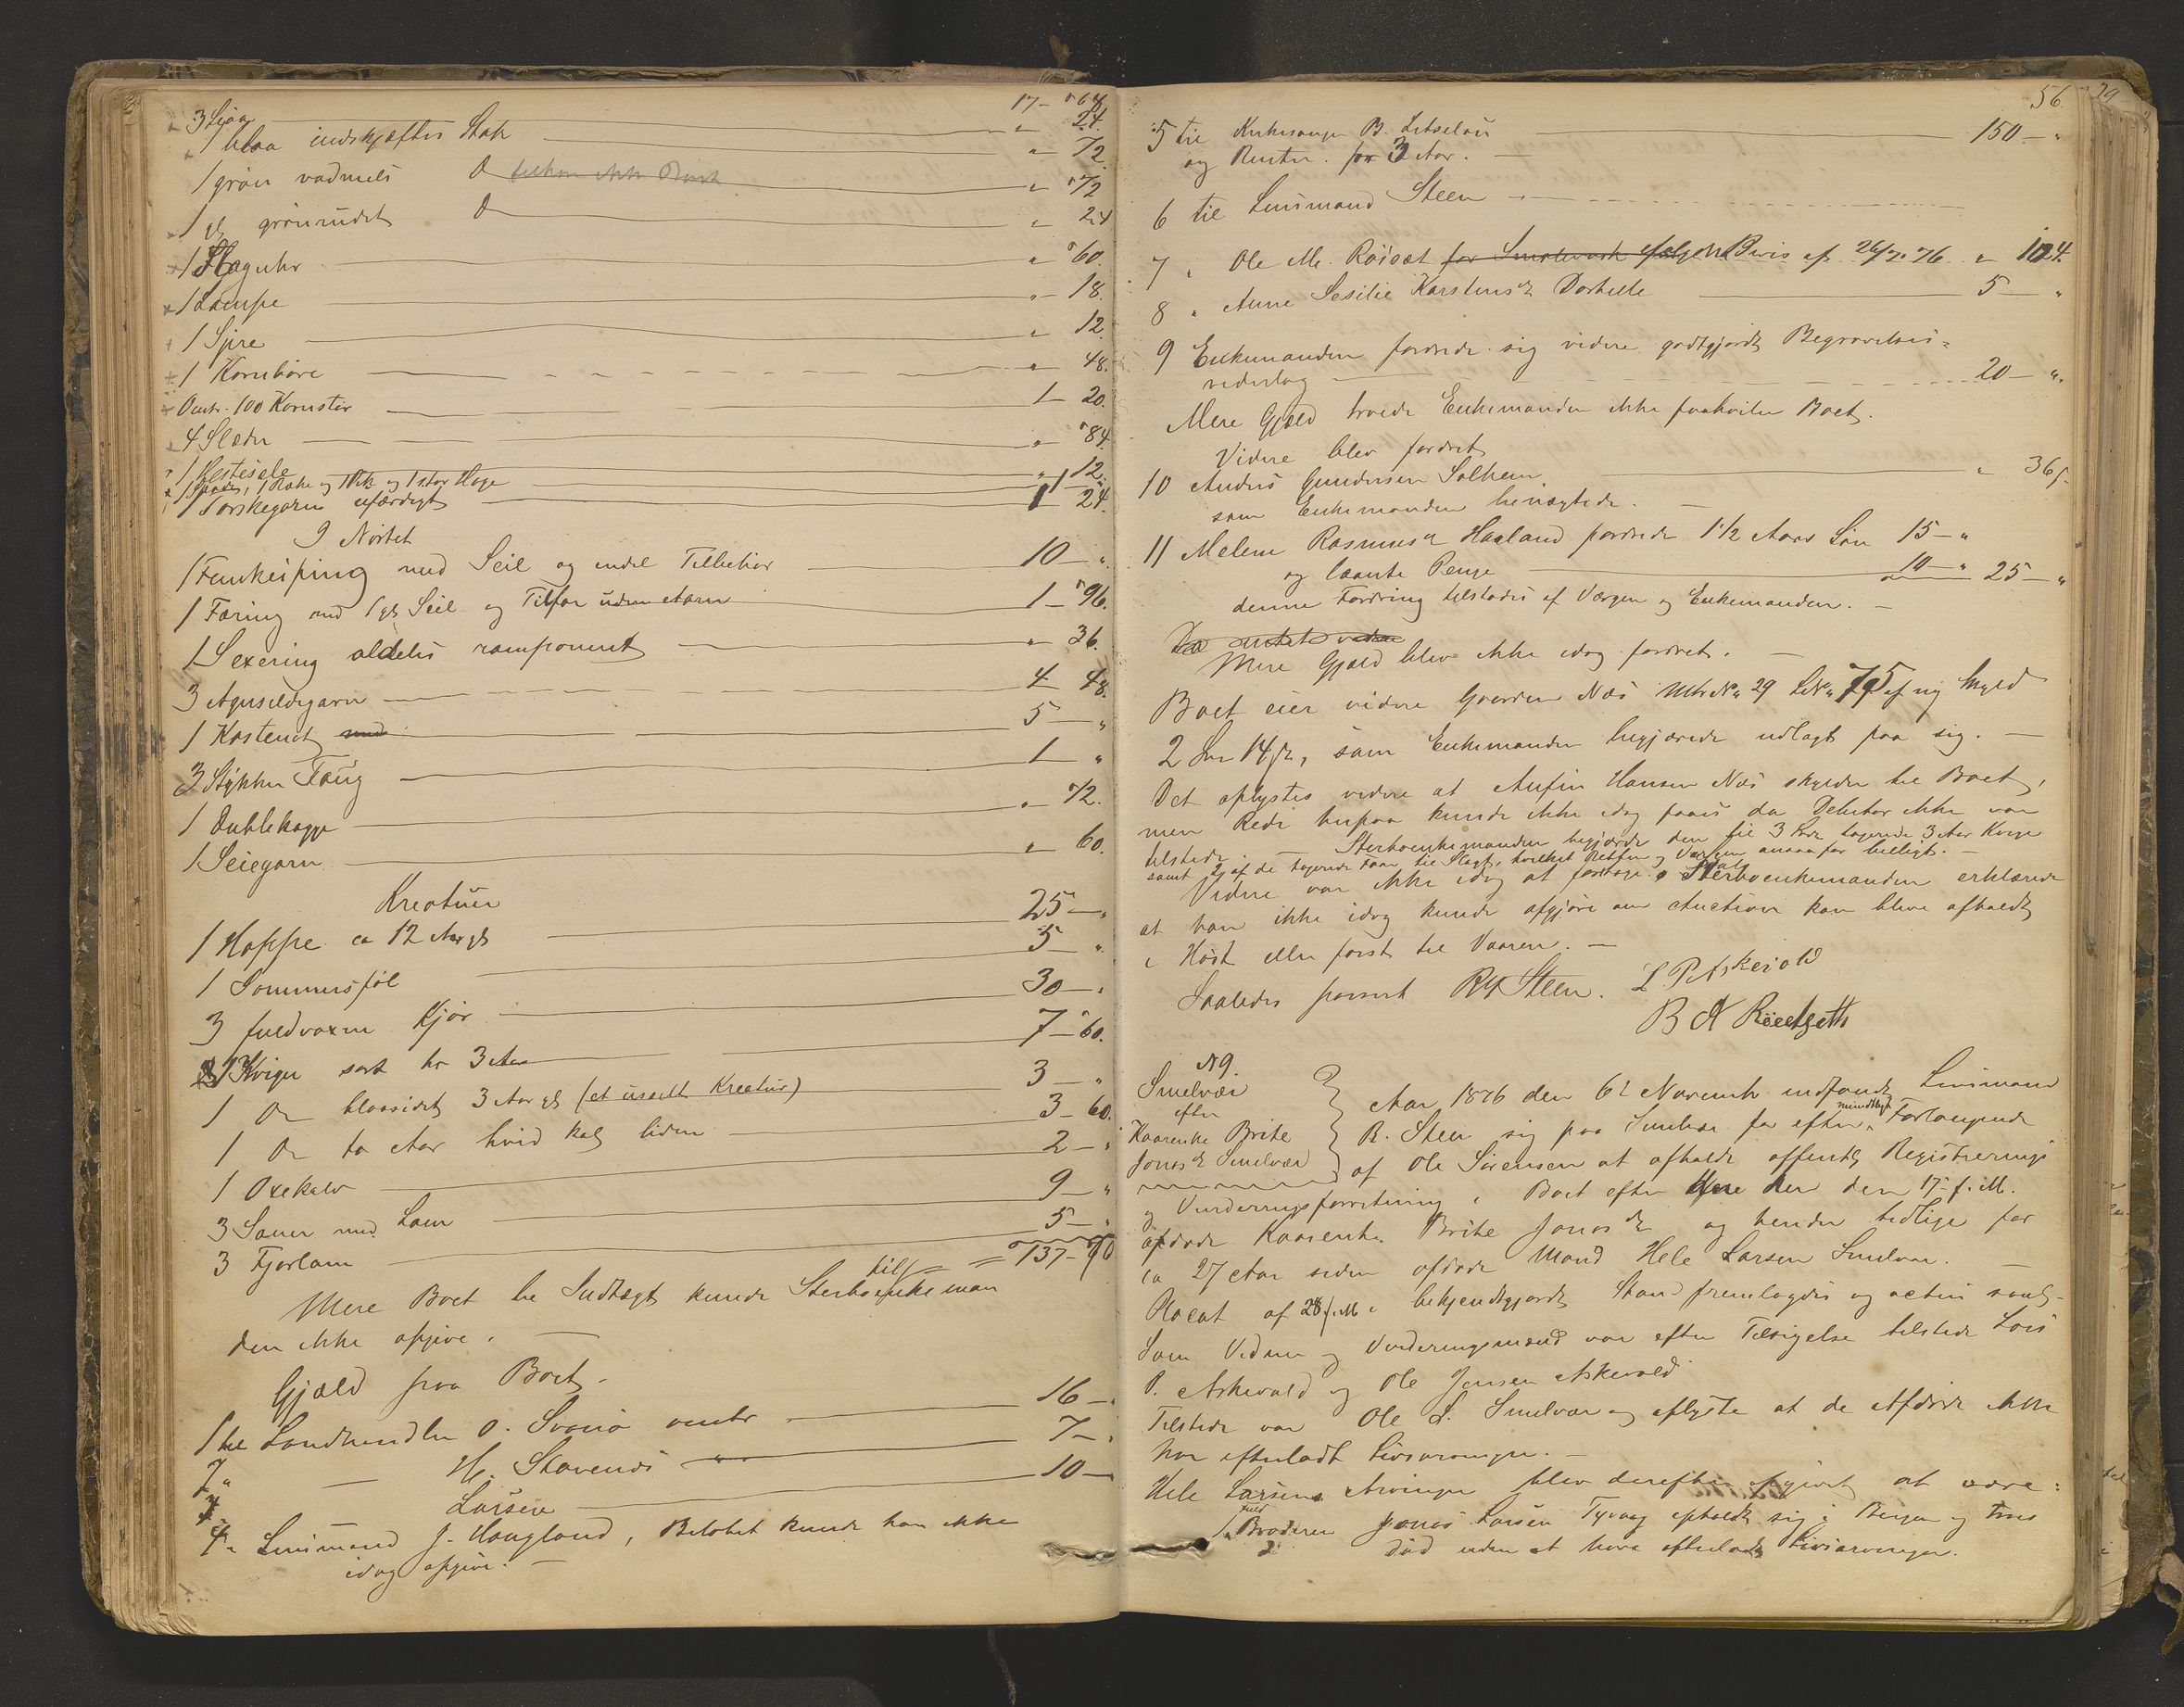 17 - 64
3 Ljaa " 24.
1 blaa indskjæftes Stak " 72
1 grøn vadmels Do " 72
1 gl grønrudet Do " 24
1 Slaguhr " 60.
1 Lampe " 18.
1 Spire " 12
1 Kornbøre " 48.
Omtr. 100 Kornstør 1 - 20.
4 Slæder " 84.
1 Hestesele " 12.
1 Rake og 1 Pik og 1 stor Hage 1
1 Torskegarn ufærdigt 1 24.
I Nøstet
1 Færing med Seil og endel Tilbehør 10 - "
1 Færing med 1 gl Seil og Tilfar uden Aarer 1 - 96.
1 Sexering aldeles ramponeret " 36.
3 Agnsildgarn 4 48.
1 Kastenot 5 - "
3 Stykker Taug 1 "
1 Dublekagge " 72.
1 Seiegarn " 60.
Kreatuer
1 Hoppe ca 12 Aar gl 25 - "
1 Sommersføl 5 - "
3 fuldvoxne Kjør 30 - "
1 Kvige sort hr 3 Aar 7 - 60.
1 Do blaasidet 3 Aar gl (et uselt Kreatur) 3 - "
1 Do to Aar hvid kol liden 3 - 60.
1 Oxekalv 2 - "
3 Sauer med Lam 9 - "
3 Fjorlam 5 - "
tils = 137 - 90
Mere Boet til Indtægt kunde Sterboenkeman
den ikke opgive. —
Gjæld paa Boet.
1 til Landhandler O. Svanø omtr 16 - "
2 " — H. Stavenes 7 - "
3 Larsen 10 -
4 " Lensmand J. Haugland, Beløbet kunde han ikke
idag opgive. —
56.
5 til Kirkesanger B. 150 - "
og Renter for 3 Aar. —
6 til Lensmand Steen
7 " Ole M. Røiset Bevis af 26/7 76 " 104.
8 " Anne Sesilie Karstensdr 5 - "
9 Enkemanden fordrede sig videre godtgjordt Begravelses=
vederlag 20 - ".
Mere Gjæld troede Enkemanden ikke paahviler Boet.
Videre blev fordret
10 Anders Gundersen Solheim " 36 s.
som Enkemanden benægtede. —
11 Malene Rasmusdr Haaland fordrede 1 1/2 Aars Løn 15 - "
og laante Penge 10 - " 25 - "
denne Fordring tilstodes af Værgen og Enkemanden. —
Da intet videre
Mere Gjæld blev ikke idag fordret. —
Boet eier videre Gaarden Næs Mtr No 29 LNo 75 af ny Skyld
2 Ort 14 s, som Enkemanden begjærede udlagt paa sig. —
Det oplystes videre at Anfin Hansen Næs skylder til Boet,
men Rede herpaa kunde ikke idag faaes da Debitor ikke var
tilstede. — Sterboenkemanden begjærte den til 3 Spd tagerede 3 Aar Kvige
samt 2 af de tagerede Faar til Slagt, hvilket Retten og Værgen ansaa for billigt. —
Videre var ikke idag at foretage. Sterboenkemanden erklærede
at han ikke idag kunde afgjøre om Auction kan blive afholdt
i Høst eller først til Vaaren. —
Saaledes passeret R H Steen. L. P. Askevold
B A
N 9.
Smelvær
efter
Kaarenke Brite
Jonasdr Smelvær
Aar 1876 den 6te Novembr indfandt Lensmand
R. Steen sig paa Smelvær for efter mundtlig Forlangende
af Ole Sørensen at afholde offentlig Registrerings
og Vurderingsforretning i Boet efter den 17 f. M.
afdøde Kaarenke Brite Jonasdr og hendes tidlige for
ca 27 Aar siden afdøde Mand Hele Larsen Smelvær. —
Placat af 28 f. M. i bekjendtgjordt Stand fremlagdes og acten saal.
Som Vidner og Vurderingsmænd var efter Tilsigelse tilstede Lars
P. Askevold og Ole Jensen Askevold
Tilstede var Ole S. Smelvær og oplyste at de Afdøde ikke
har efterladt Livsarvinger. —
Hele Larsens Arvinger blev derefter opgivet at være:
1 fuld Broderen Jonas Larsen Tyvaag opholdt sig i Bergen og troes
død uden at have efterladt Livsarvinger.